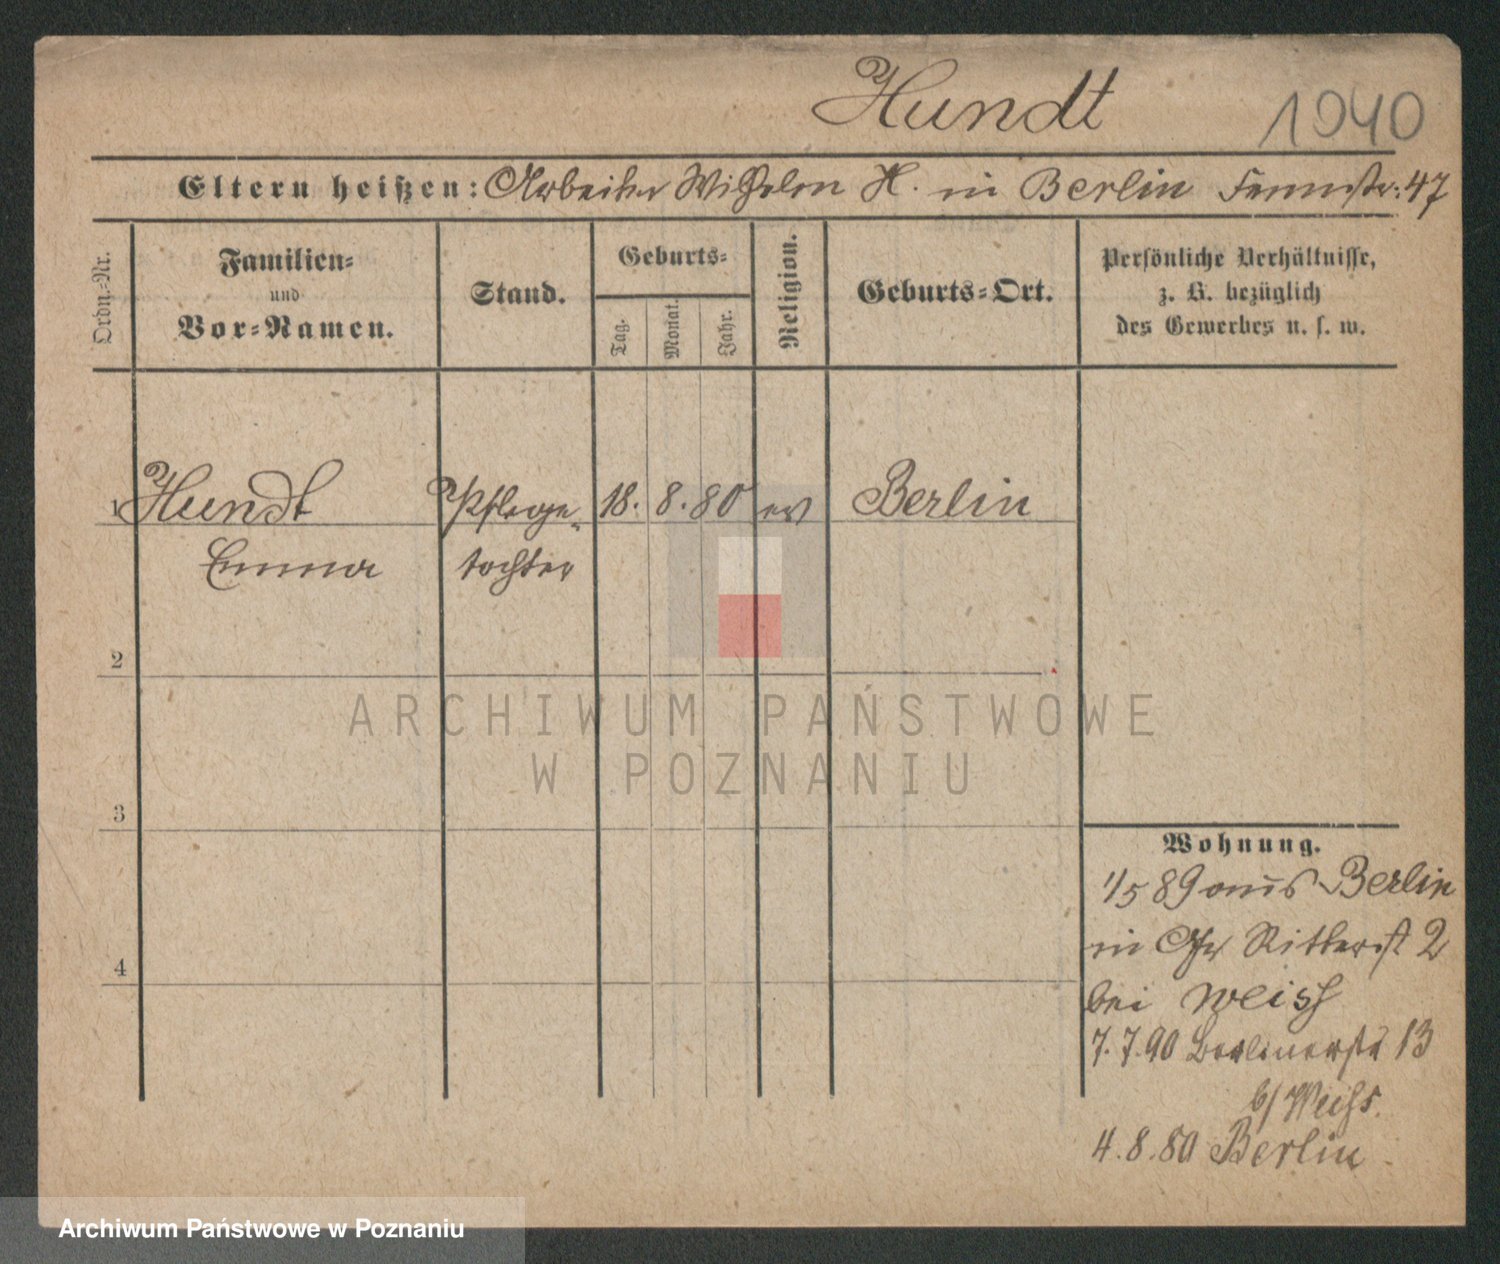 Hundt 1940
Eltern heißen: Arbeiter Wilhelm H. in Berlin Fennstr: 47
Ordn.-Nr.
Familien-
und
Vor-Namen.
Stand.
Geburts-
Tag.
Monat.
Jahr.
Religion.
Geburts-Ort.
Persönliche Verhältnisse,
z. B. bezüglich
des Gewerbes u. s. w.
1 Hundt Pflege- 18. 8. 80 ev Berlin
Emma tochter
2
ARCHIWUM PAŃSTWOWE
W POZNANIU
3
Wohnung.
1/5 89 aus Berlin
in Ritterst 2
4
bei Weiss
7.7.90 Berlinerstr 13
b/ Weiss.
4.8.80 Berlin
Archiwum Państwowe w Poznaniu